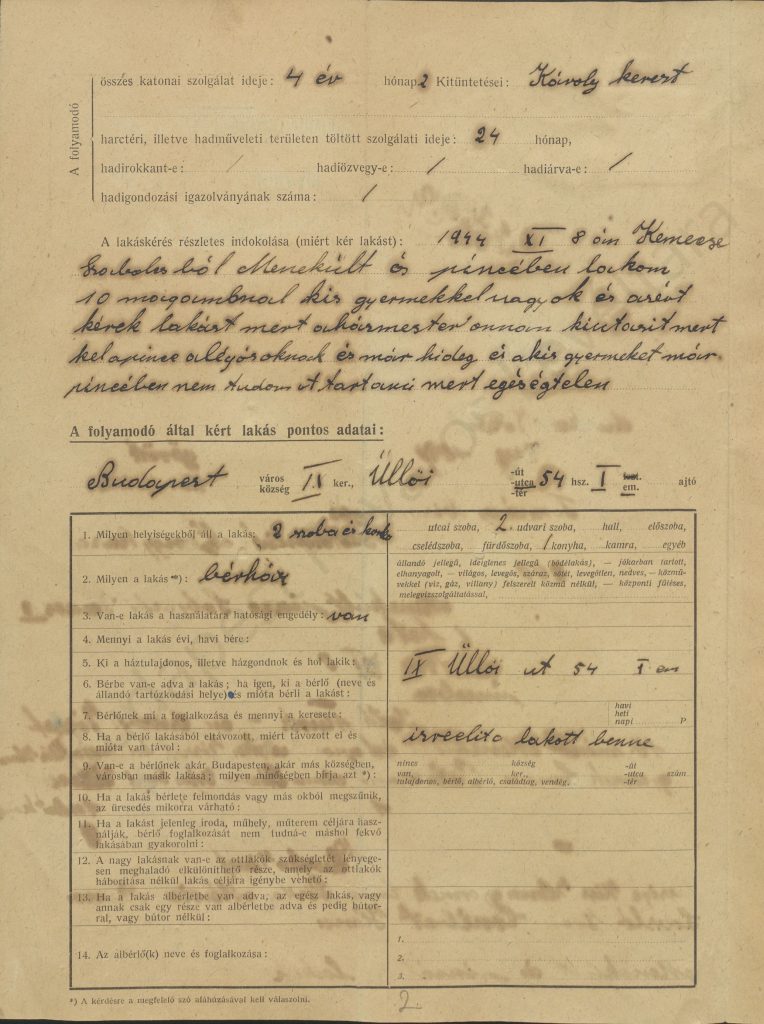 A folyamodó
összes katonai szolgálat ideje: 4 év hónap 2 Kitüntetései: Károly kereszt
harctéri, illetve hadműveleti területen töltött szolgálati ideje: 24 hónap,
hadirokkant-e: / hadiözvegy-e: / hadiárva-e: /
hadigondozási igazolványának száma: /
A lakáskérés részletes indokolása (miért kér lakást): 1944 XI 8 án Kemecse
Szabolcsból Menekült és pincében lakom
10 magambnal kis gyermekkel vagyok és asért
kérek lakást mert aházmester onnan kiutasit mert
kel apince alégósoknak és már hideg és akis gyermeket már
pincében nem tudom ut tartani mert egéségtelen
A folyamodó által kért lakás pontos adatai:
Budapest város község IX ker., Üllői -út -utca -tér 54 hsz. I em. ajtó
1. Milyen helyiségekből áll a lakás: 2 szoba és
utcai szoba, 2 udvari szoba, hall, előszoba,
cselédszoba, fürdőszoba, 1 konyha, kamra, egyéb
2. Milyen a lakás*): bérház
állandó jellegű, ideiglenes jellegű (bódélakás), — jókarban tartott,
elhanyagolt, — világos, levegős, száraz, sötét, levegőtlen, nedves, — közmű-
vekkel (víz, gáz, villany) felszerelt közmű nélkül, — központi fűtéses,
melegvízszolgáltatással,
3. Van-e lakás a használatára hatósági engedély: van
4. Mennyi a lakás évi, havi bére:
5. Ki a háztulajdonos, illetve házgondnok és hol lakik:
IX Üllői ut 54 I em
6. Bérbe van-e adva a lakás; ha igen, ki a bérlő (neve és
állandó tartózkodási helye) és mióta bérli a lakást:
7. Bérlőnek mi a foglalkozása és mennyi a keresete:
havi
heti
napi P
8. Ha a bérlő lakásából eltávozott, miért távozott el és
mióta van távol:
izreelita lakott benne
9. Van-e a bérlőnek akár Budapesten, akár más községben,
városban másik lakása; milyen minőségben bírja azt *):
nincs község -út
van, ker., -utca szám
tulajdonos, bérlő, albérlő, családtag, vendég, -tér
10. Ha a lakás bérlete felmondás vagy más okból megszűnik,
az üresedés mikorra várható:
11. Ha a lakást jelenleg iroda, műhely, műterem céljára hasz-
nálják, bérlő foglalkozását nem tudná-e máshol fekvő
lakásában gyakorolni:
12. A nagy lakásnak van-e az ottlakók szükségletét lényege-
sen meghaladó elkülöníthető része, amely az ottlakók
háborítása nélkül lakás céljára igénybe vehető:
13. Ha a lakás albérletbe van adva, az egész lakás, vagy
annak csak egy része van albérletbe adva és pedig bútor-
ral, vagy bútor nélkül:
14. Az albérlő(k) neve és foglalkozása:
1.
2.
3.
*) A kérdésre a megfelelő szó aláhúzásával kell válaszolni.
2.